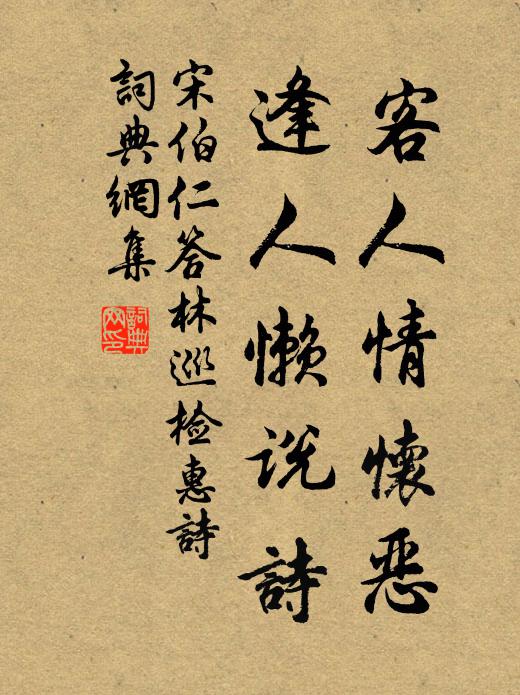 客人情懷惡
逢人懒説詩
宋伯仁答林巡检惠詩
詞典網集
詞典網印